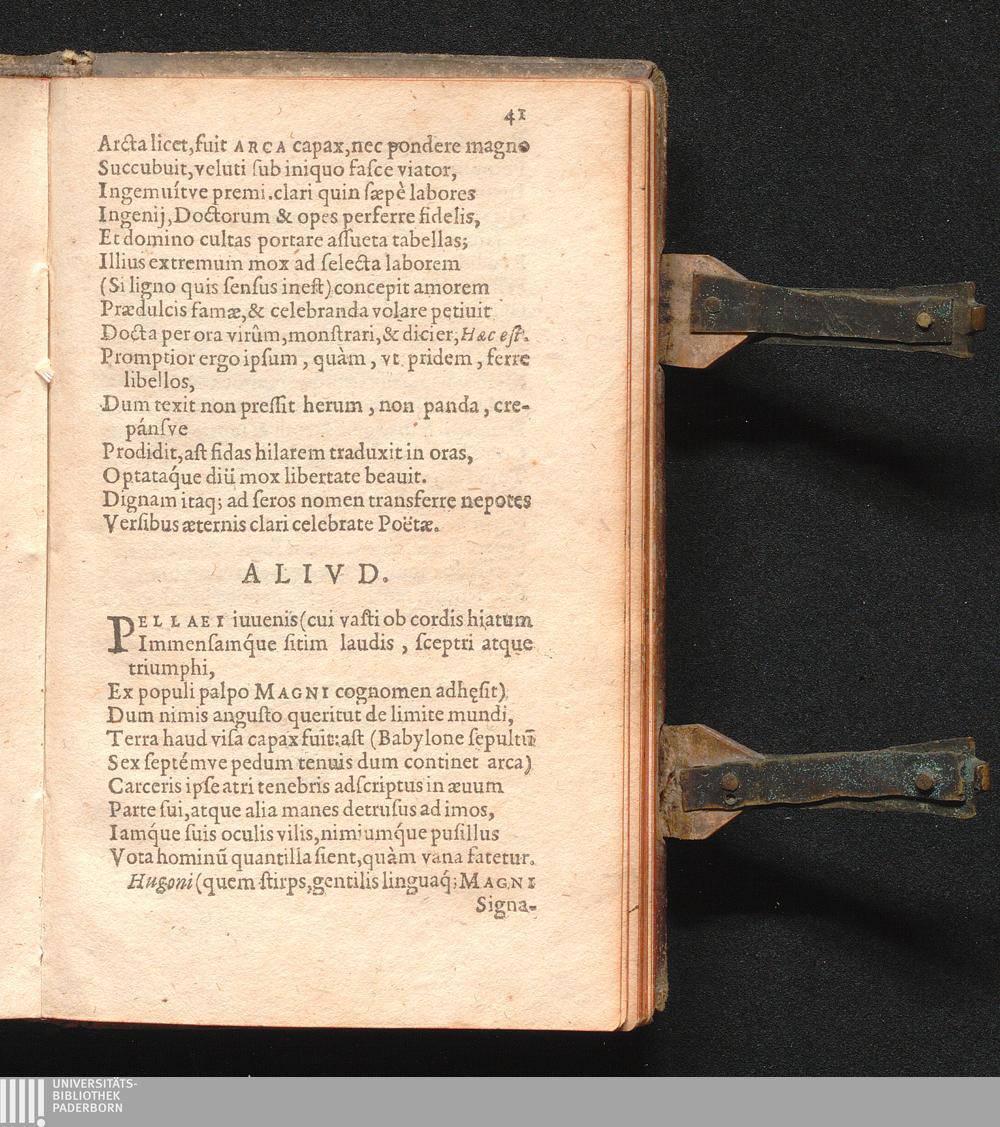 41
Arcta licet,fuit ARCA capax,nec pondere magno
Succubuit,veluti ſub iniquo faſce viator,
Ingemuítve premi.clari quin ſæpè labores
Ingenij,Doctorum & opes perferre fidelis,
Et domino cultas portare aſſueta tabellas;
Illius extremum mox ad ſelecta laborem
(Si ligno quis ſenſus ineſt)concepit amorem
Prædulcis famæ,& celebranda volare petiuit
Docta per ora virûm,monſtrari,& dicier,Hæc eſt.
Promptior ergo ipſum , quàm , vt pridem , ferre
libellos,
Dum texit non preſſit herum , non panda , cre-
pánſve
Prodidit,aſt fidas hilarem traduxit in oras,
Optataq́ue diù mox libertate beauit.
Dignam itaq; ad ſeros nomen transferre nepotes
Verſibus æternis clari celebrate Poëtæ.
ALIVD.
PELLAEI iuuenis(cui vaſti ob cordis hiatum
Immenſamq́ue ſitim laudis , ſceptri atque
triumphi,
Ex populi palpo MAGNI cognomen adhęſit)
Dum nimis anguſto queritut de limite mundi,
Terra haud viſa capax fuit:aſt (Babylone ſepultũ
Sex ſeptémve pedum tenuis dum continet arca)
Carceris ipſe atri tenebris adſcriptus in æuum
Parte ſui,atque alia manes detruſus ad imos,
Iamq́ue ſuis oculis vilis,nimiumq́ue puſillus
Vota hominũ quantilla ſient,quàm vana fatetur.
Hugoni(quem ſtirps,gentilis linguaq́;MAGNI
Signa-
UNIVERSITÄTS-
BIBLIOTHEK
PADERBORN